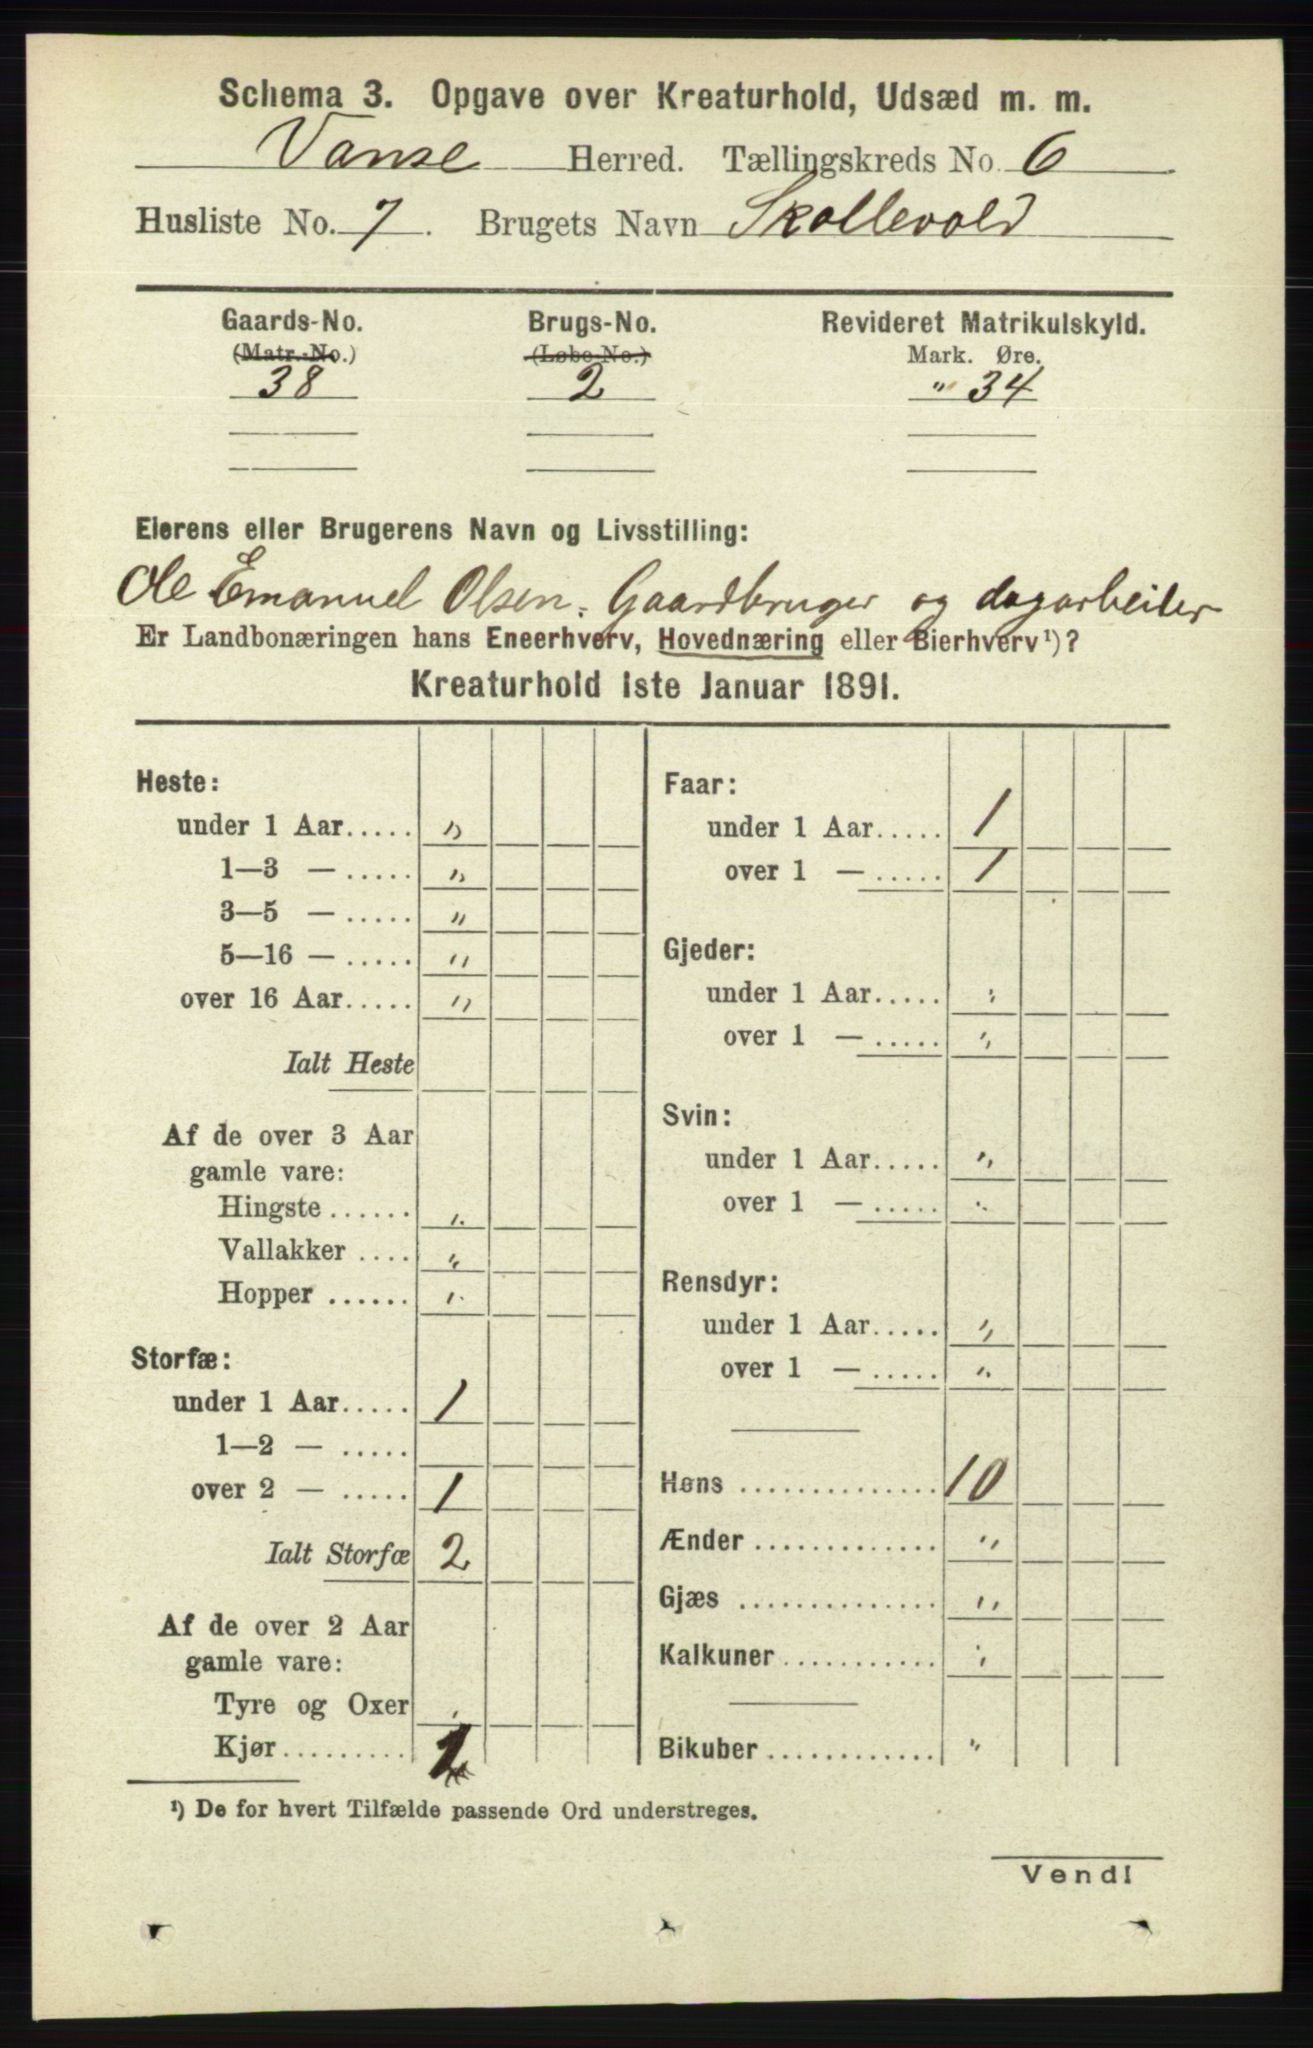 Schema 3. Opgave over Kreaturhold, Udsæd m. m.
Vanse Herred. Tællingskreds No. 6
Husliste No. 7. Brugets Navn Skollevold
Gaards-No. Brugs-No. Revideret Matrikulskyld.
(Matr.-No.) (Løbe-No.) Mark. Øre.
38 2 " 34
Eierens eller Brugerens Navn og Livsstilling:
Ole Emanuel Olsen. Gaardbruger og dagarbeiter
Er Landbonæringen hans Eneerhverv, Hovednæring eller Bierhverv¹)?
Kreaturhold 1ste Januar 1891.
Heste:
under 1 Aar..... "
1—3 — ..... "
3—5 — ..... "
5—16 — ..... "
over 16 Aar..... "
Ialt Heste
Af de over 3 Aar
gamle vare:
Hingste ...... "
Vallakker .... "
Hopper ...... "
Storfæ:
under 1 Aar..... 1
1—2 — .....
over 2 — ..... 1
Ialt Storfæ 2
Af de over 2 Aar
gamle vare:
Tyre og Oxer "
Kjør.........
Faar:
under 1 Aar..... 1
over 1 — ..... 1
Gjeder:
under 1 Aar..... "
over 1 — ..... "
Svin:
under 1 Aar..... "
over 1 — ..... "
Rensdyr:
under 1 Aar..... "
over 1 — ..... "
Høns .............. 10
Ænder ............. "
Gjæs .............. "
Kalkuner ........... "
Bikuber ............. "
¹) De for hvert Tilfælde passende Ord understreges.
Vend!